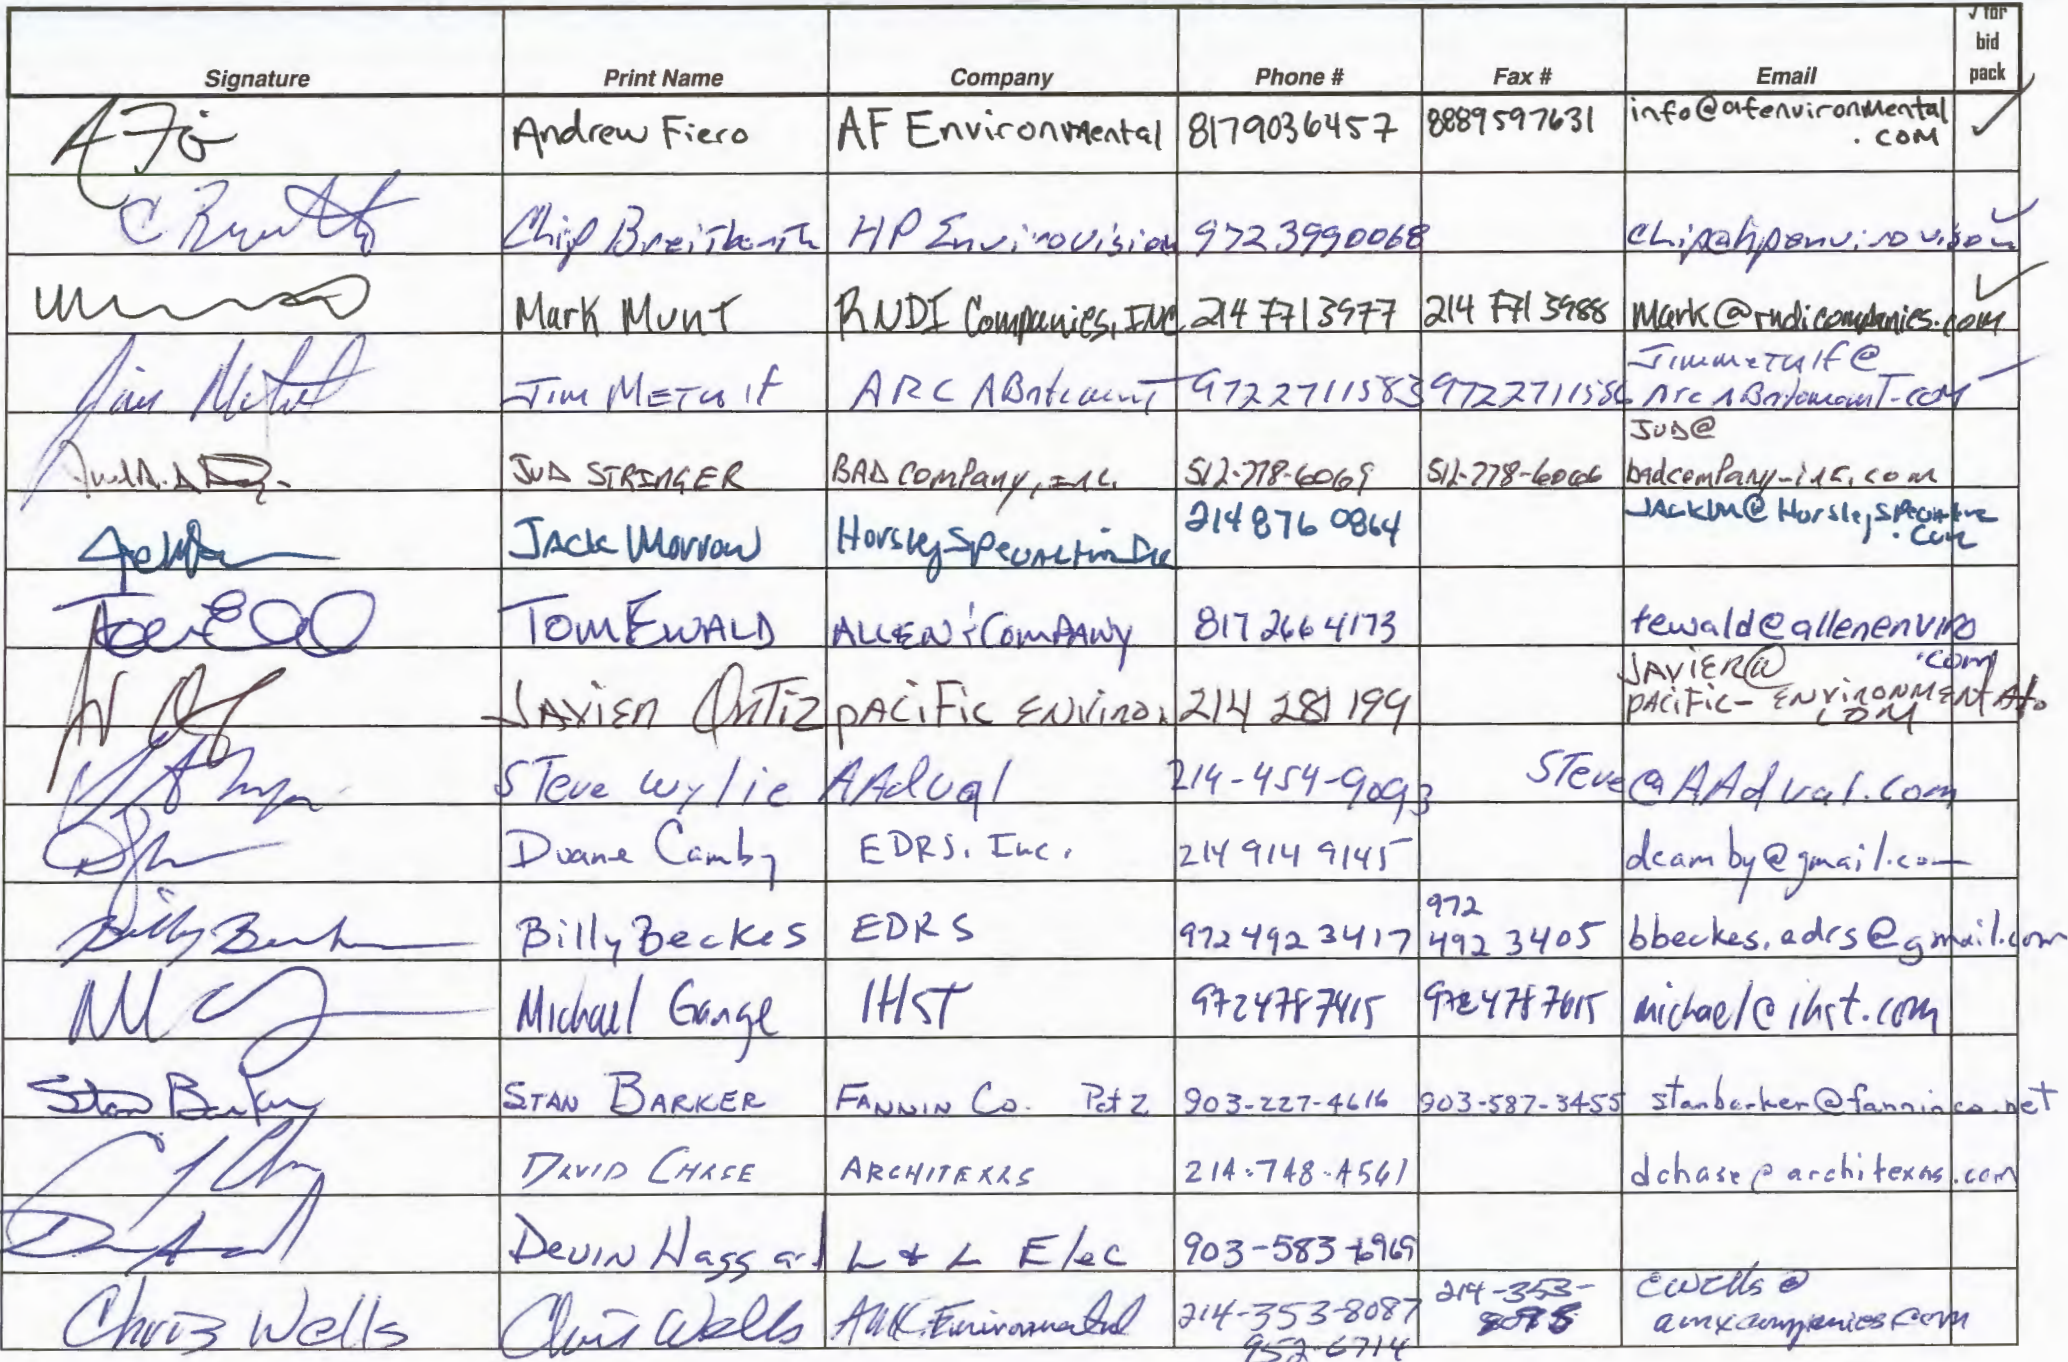 √ for
bid
pack
Signature Print Name Company Phone # Fax # Email
Andrew Fiero AF Environmental 8179036457 8889597631 info@afenvironmental
.com ✓
Chip HP Envirovision 9723990068 chip@hpenvirovision ✓
Mark Munt RNDI Companies, INC. 214 771 3977 214 771 3988 Mark@rndicompanies.com ✓
Jimmetcalf@
Jim Metcalf ARC ABatement 9722711583 9722711586 ArcABatement.com
JUD@
JUD STRINGER BAD Company, INC. 512-778-6069 512-778-6066 badcompany-inc.com
Jack Morrow Horsley Specialties Inc 214 876 0864 JACKM@
.com
Tom EWALD ALLEN & COMPANY 817 266 4173 tewald@allenenviro
.com
JAVIER@
JAVIER ORTIZ PACIFIC ENVIRO. 214 281 199 PACIFIC-ENVIRONMENTAL
COM
Steve Wylie AAdval 214-454-9093 Steve@AAdval.com
Duane Camby EDRS, Inc. 214 914 9145 dcamby@gmail.com
972
Billy Beckes EDRS 972 492 3417 492 3405 bbeckes.edrs@gmail.com
Michael Gange IHST 9724787415 9724787615 michael@ihst.com
Stan Barker STAN BARKER FANNIN Co. Pct 2 903-227-4616 903-587-3455 stanbarker@fanninco.net
DAVID CHASE ARCHITEXAS 214-748-4561 dchase@architexas.com
Devin Haggard L & L Elec 903-583-6969
Chris Wells Chris Wells AMX Environmental 214-353-8087 214-353-
cwells@
amxcompanies.com
952-6714